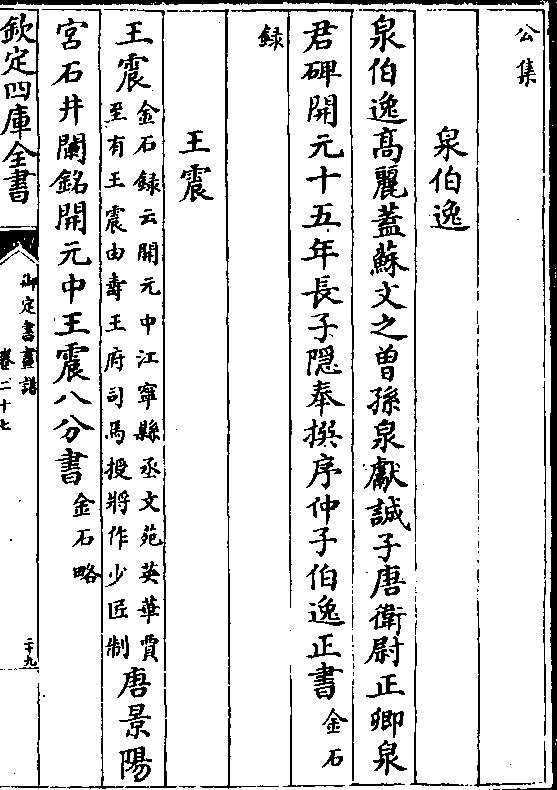 公集
泉伯逸
泉伯逸高麗蓋蘇文之曾孫泉獻誠子唐衛尉正卿泉
君碑開元十五年長子隱奉撰序仲子伯逸正書金石
録
王震
王震金石録云開元中江寧縣丞文苑英華賈
至有王震由壽王府司馬授將作少匠制唐景陽
宮石井闌銘開元中王震八分書金石略
欽定四庫全書
御定書畫譜
卷二十七
二十九